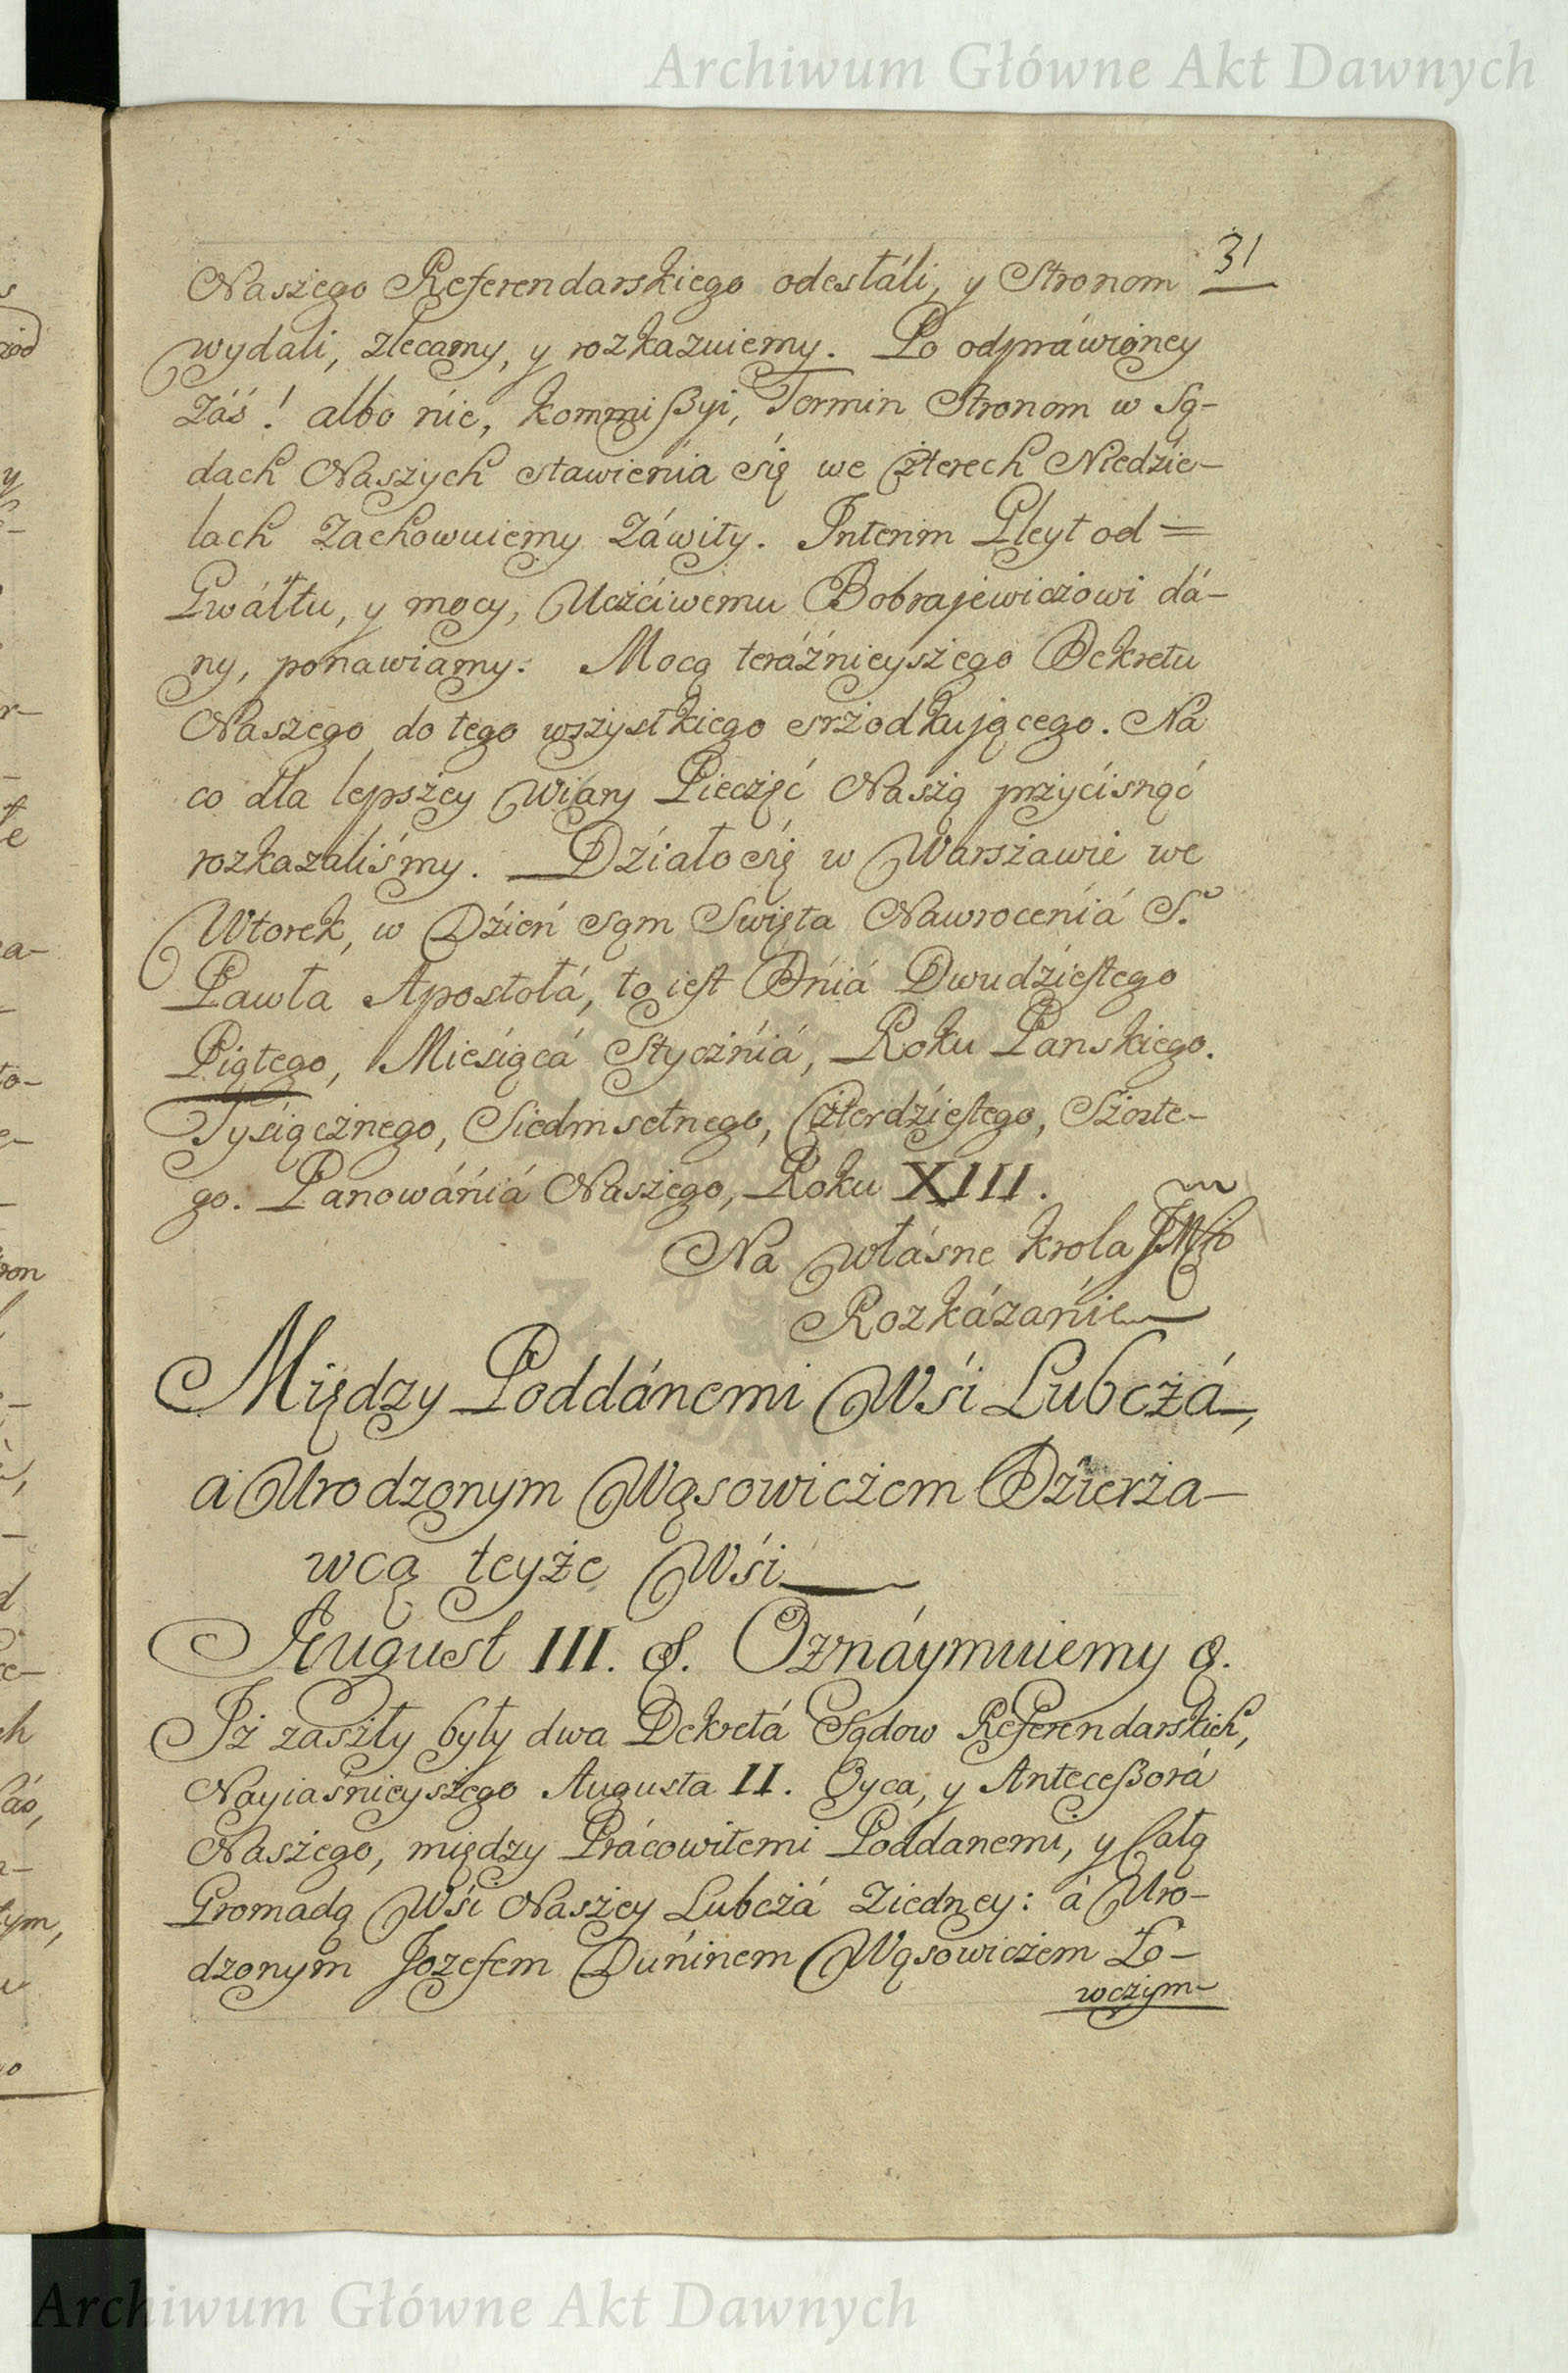 Archiwum Główne Akt Dawnych
31
Naszego Referendarskiego odesłáli, y Stronom
wydali, zlecamy, y rozkazuiemy. Po odpráwioney
záś! albo nie, kommißyi, Termin Stronom w Są-
dach Naszych stawienia się we Czterech Niedzie-
lach zachowuiemy záwity. Interim Gleyt od=
Gwáłtu, y mocy, Uczćiwemu Bobrajewiczowi dá-
ny, ponawiamy. Mocą teráźnieyszego Dekretu
Naszego do tego wszystkiego srzodkującego. Na
co dla lepszey wiary Pieczęć Naszą przyćisnąć
rozkazaliśmy. Działo się w Warszawie we
Wtorek, w Dźień sąm Swięta Nawrocenia S.º
Pawła Apostołá, to iest Dniá Dwudziestego
Piątego, Miesiącá Styczniá, Roku Panskiego.
Tysiącznego, Siedmsetnego, Czterdziestego, Szoste-
go. Panowániá Naszego, Roku XIII.
Na włásne krola JMśi
Rozkázanie
Między Poddánemi Wśi Lubczá,
a Urodzonym Wąsowiczem Dzierża-
wcą teyże Wśi
August III. &. Oznáymuiemy &.
Iż zaszły były dwa Dekretá Sądow Referendarskich,
Nayiaśnieyszego Augusta II. Oyca, y Anteceßorá
Naszego, między Prácowitemi Poddanemi, y Całą
Gromadą Wśi Naszey Lubczá ziedney: á Uro-
dzonym Jozefem Duninem Wąsowiczem Ło-
wczym-
Archiwum Główne Akt Dawnych